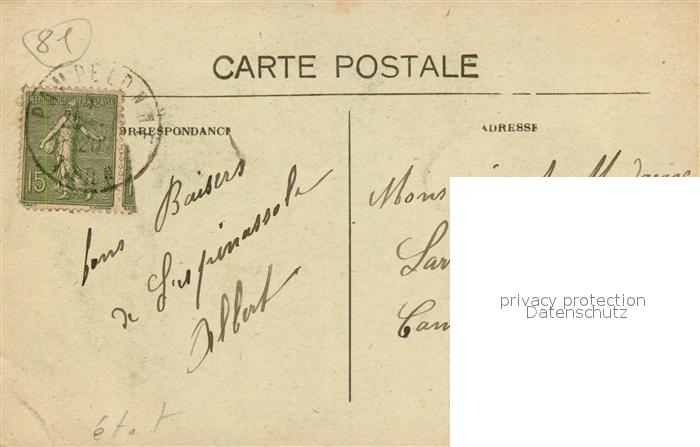 81
CARTE POSTALE
PAMPELONNE
TARN
REPUBLIQUE FRANÇAISE
15
CORRESPONDANCE
ADRESSE
bons Baisers
de Lespinassole
Albert
Lar
Cam
privacy protection
Datenschutz
état